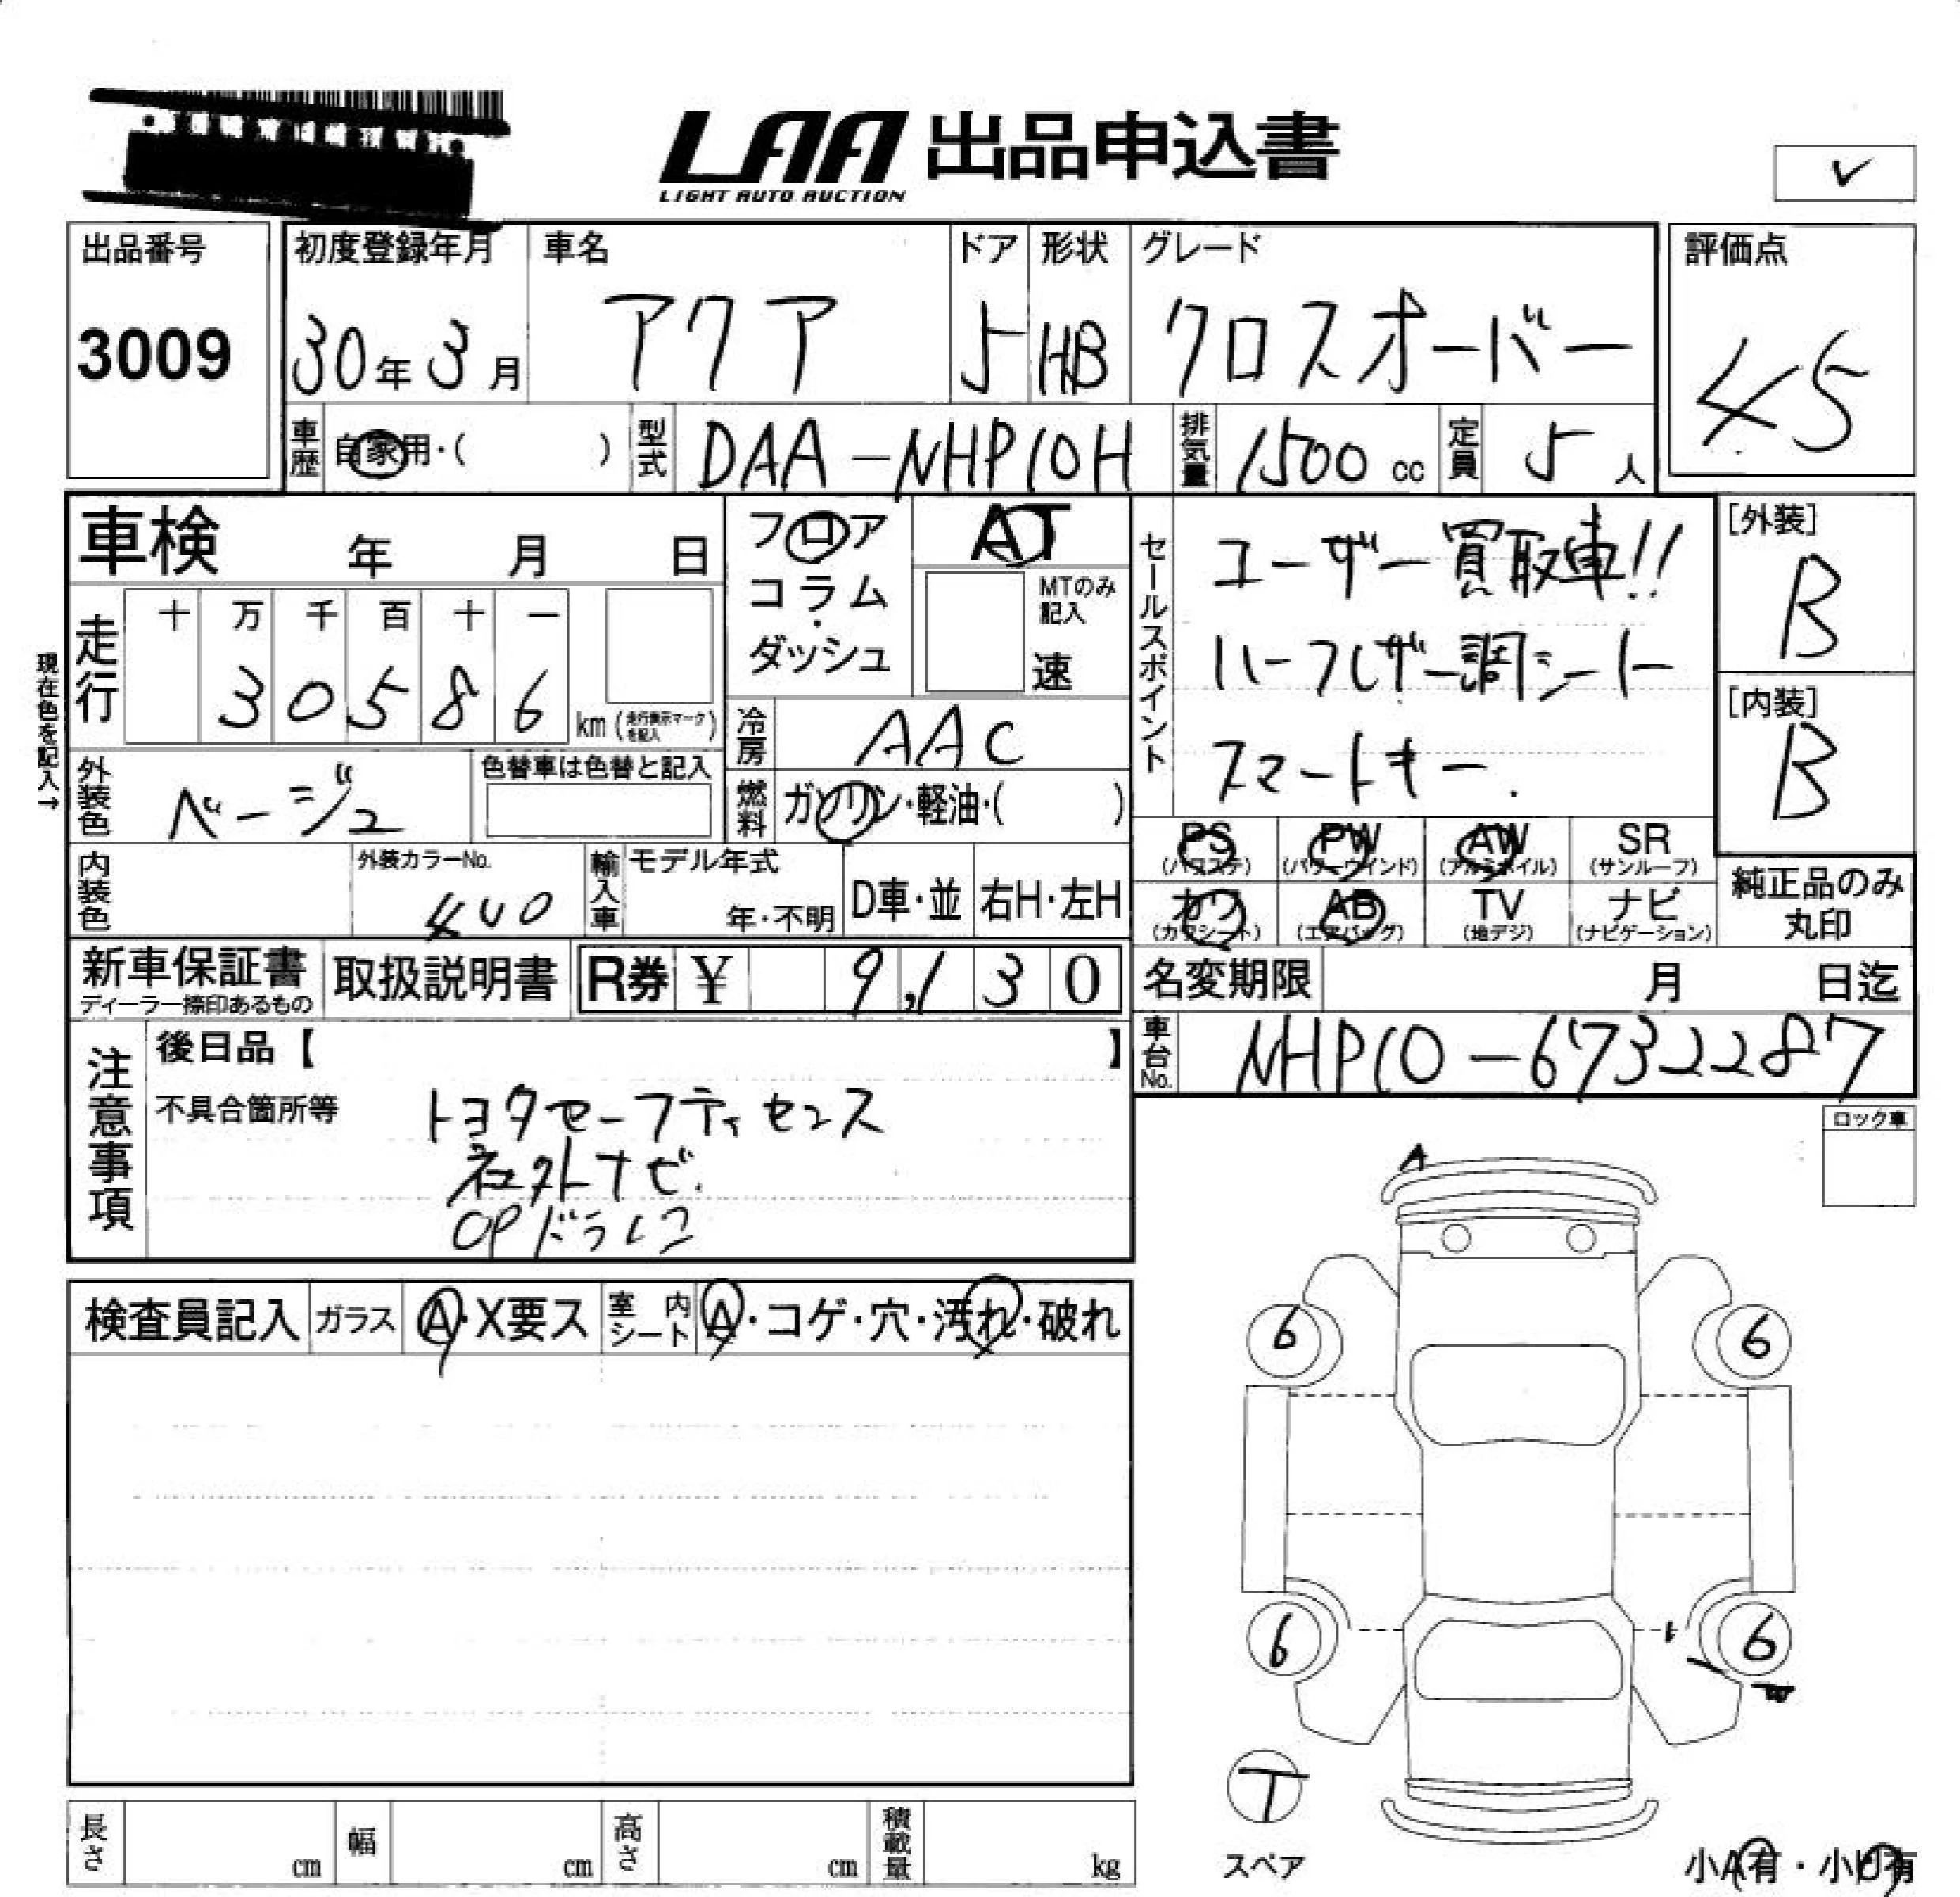 LAA 出品申込書
LIGHT AUTO AUCTION
出品番号
3009
初度登録年月
30年 3月
車名
アクア
ドア
5
形状
HB
グレード
クロスオーバー
評価点
4.5
車歴
自家用・( )
型式
DAA-NHP10H
排気量
1500 cc
定員
5 人
車検 年 月 日
フロア
コラム
・
ダッシュ
AT
MTのみ
記入
速
セールスポイント
ユーザー買取車!!
ハーフレザー調シート
スマートキー.
[外装]
B
[内装]
B
現在色を記入→
走行
十 万 千 百 十 一
3 0 5 8 6
km (走行表示マークを記入)
冷房
AAC
外装色
ベージュ
色替車は色替と記入
燃料
ガソリン・軽油・( )
PS (パワステ)
PW (パワーウインド)
AW (アルミホイル)
SR (サンルーフ)
カワ (カワシート)
AB (エアバッグ)
TV (地デジ)
ナビ (ナビゲーション)
純正品のみ
丸印
内装色
外装カラーNo.
4V0
輸入車
モデル年式
年・不明
D車・並
右H・左H
新車保証書
ディーラー捺印あるもの
取扱説明書
R券 ¥ 9,130
名変期限 月 日迄
車台No.
NHP10-6732287
注意事項
後日品【 】
不具合箇所等
トヨタセーフティセンス
社外ナビ.
OPドラレコ
ロック車
検査員記入
ガラス
A・X要ス
室内シート
A・コゲ・穴・汚れ・破れ
A
6
6
6
6
T
スペア
長さ cm
幅 cm
高さ cm
積載量 kg
小A有・小U有